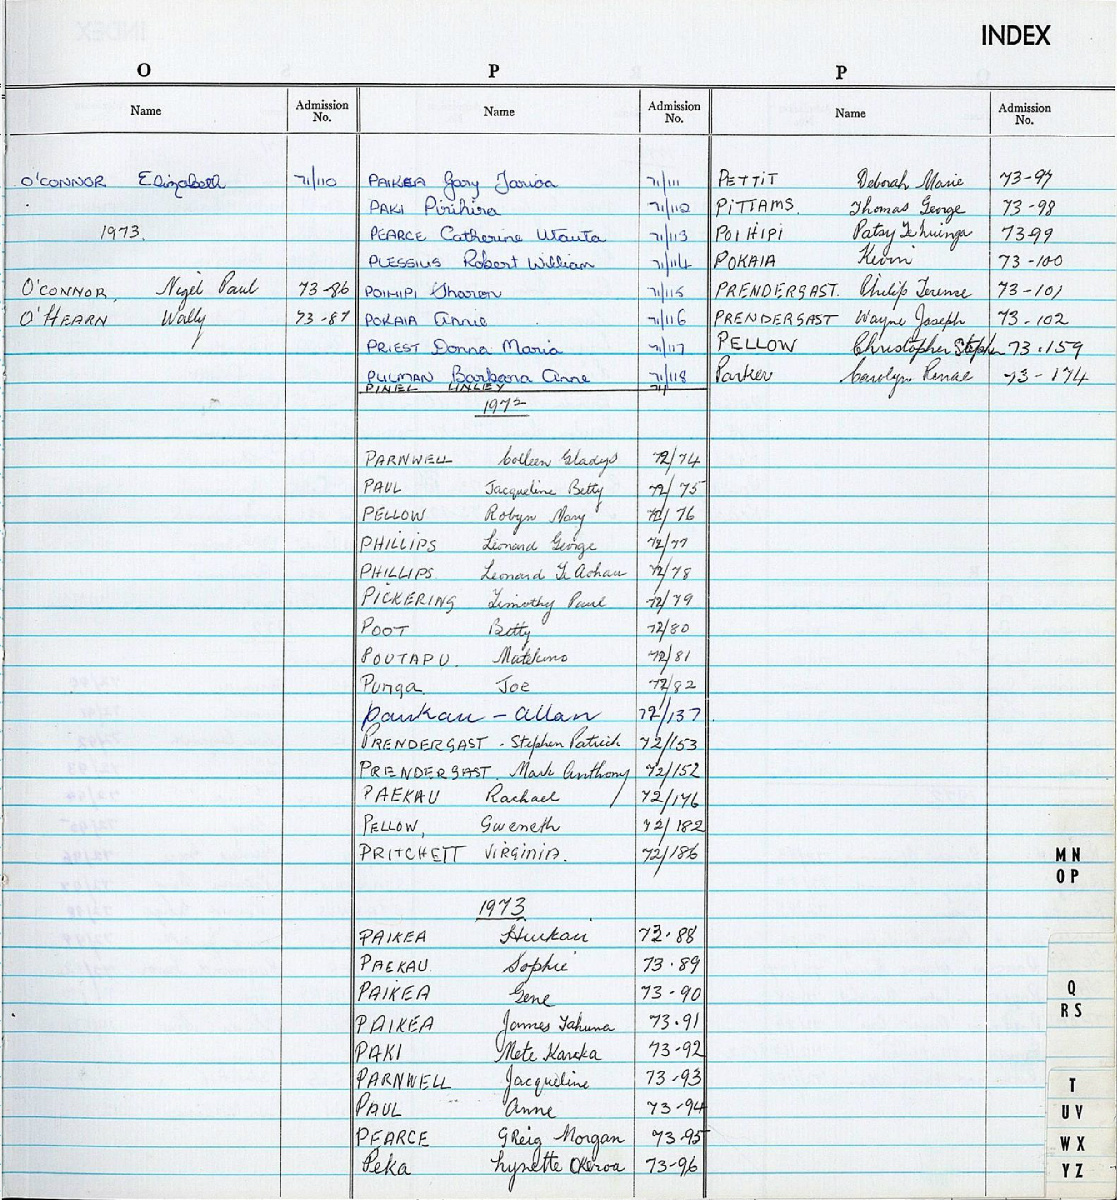 INDEX
O
Name Admission No.
O'CONNOR Elizabeth 71/110
1973.
O'CONNOR, Nigel Paul 73-86
O'HEARN Wally 73-87
P
Name Admission No.
PAIKEA Gary 71/111
PAKI Pirihira 71/112
PEARCE Catherine 71/113
PLESSIUS Robert William 71/114
POIHIPI Sharon 71/115
POKAIA Annie 71/116
PRIEST Donna Maria 71/117
PULMAN Barbara Anne 71/118
PINEL LINLEY 71/
1972
PARNWELL Colleen Gladys 72/74
PAUL Jacqueline Betty 72/75
PELLOW Robyn Mary 72/76
PHILLIPS Leonard George 72/77
PHILLIPS Leonard Te 72/78
PICKERING Timothy Paul 72/79
POOT Betty 72/80
POUTAPU. 72/81
Punga Joe 72/82
Paukau - Allan 72/137
PRENDERGAST - Stephen Patrick 72/153
PRENDERGAST. Mark Anthony 72/152
PAEKAU Rachael 72/176
PELLOW, Gweneth 72/182
PRITCHETT VIRGINIA. 72/186
1973
PAIKEA 73.88
PAEKAU Sophie 73.89
PAIKEA Gene 73-90
PAIKEA James Tahuna 73.91
PAKI Mete 73-92
PARNWELL Jacqueline 73-93
PAUL Anne 73-94
PEARCE GReig Morgan 73.95
Peka Lynette 73-96
P
Name Admission No.
PETTIT Deborah Marie 73-97
PITTAMS. Thomas George 73-98
POIHIPI Patsy Te huinga 73-99
POKAIA Kevin 73-100
PRENDERGAST. Philip Terence 73-101
PRENDERGAST Wayne Joseph 73-102
PELLOW Christopher Stephen 73.159
Parker Carolyn Renae 73-174
MN
OP
Q
RS
T
UV
WX
YZ